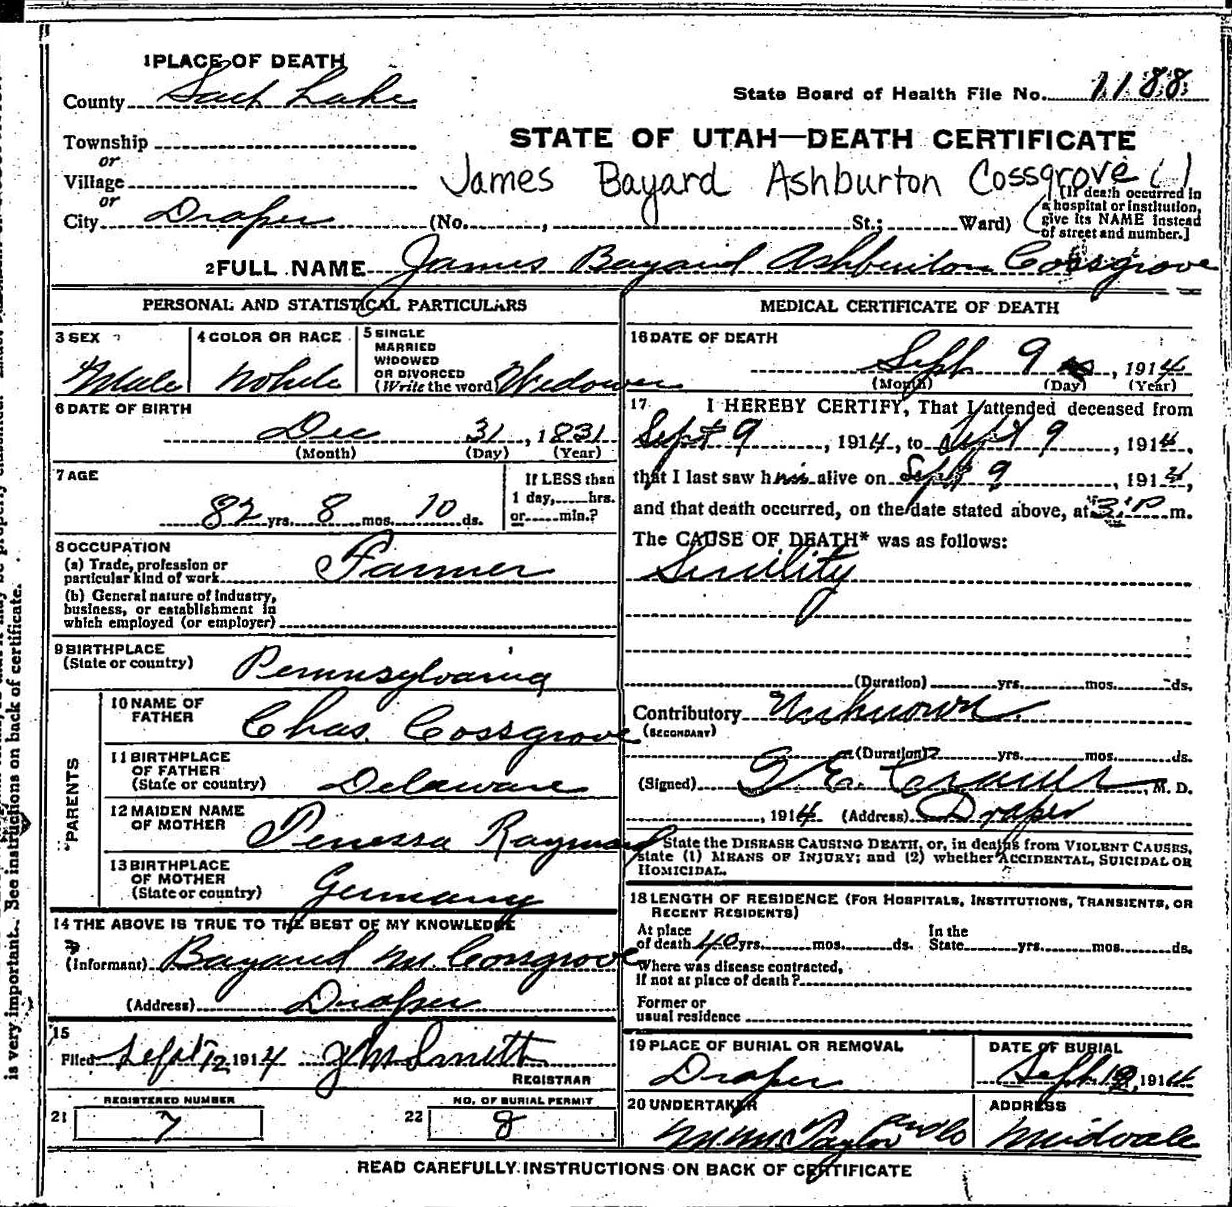 1 PLACE OF DEATH
County Salt Lake
State Board of Health File No. 1188
Township
or
Village
or
City Draper (No. , St.; Ward)
STATE OF UTAH—DEATH CERTIFICATE
James Bayard Ashburton Cossgrove ( )
[If death occurred in
a hospital or institution,
give its NAME instead
of street and number.]
2 FULL NAME James Bayard Ashburton Cossgrove
PERSONAL AND STATISTICAL PARTICULARS
3 SEX
Male
4 COLOR OR RACE
White
5 SINGLE
MARRIED
WIDOWED
OR DIVORCED
(Write the word) Widower
6 DATE OF BIRTH
Dec 31, 1831
(Month) (Day) (Year)
7 AGE
82 yrs. 8 mos. 10 ds.
If LESS than
1 day, hrs.
or min.?
8 OCCUPATION
(a) Trade, profession or
particular kind of work Farmer
(b) General nature of industry,
business, or establishment in
which employed (or employer)
9 BIRTHPLACE
(State or country) Pennsylvania
PARENTS
10 NAME OF
FATHER Chas. Cossgrove
11 BIRTHPLACE
OF FATHER
(State or country) Delaware
12 MAIDEN NAME
OF MOTHER
13 BIRTHPLACE
OF MOTHER
(State or country) Germany
14 THE ABOVE IS TRUE TO THE BEST OF MY KNOWLEDGE
(Informant) Bayard M. Cossgrove
(Address) Draper
15
Filed Sept 12, 1914 J M Smith
REGISTRAR
21 REGISTERED NUMBER
7
22 NO. OF BURIAL PERMIT
8
MEDICAL CERTIFICATE OF DEATH
16 DATE OF DEATH
Sept 9, 1914
(Month) (Day) (Year)
17 I HEREBY CERTIFY, That I attended deceased from
Sept 9, 1914, to Sept 9, 1914,
that I last saw him alive on Sept 9, 1914,
and that death occurred, on the date stated above, at 3 P m.
The CAUSE OF DEATH* was as follows:
Senility
(Duration) yrs. mos. ds.
Contributory Unknown
(SECONDARY)
(Duration) yrs. mos. ds.
(Signed) , M. D.
, 1914 (Address) Draper
State the DISEASE CAUSING DEATH, or, in deaths from VIOLENT CAUSES,
state (1) MEANS OF INJURY; and (2) whether ACCIDENTAL, SUICIDAL OR
HOMICIDAL.
18 LENGTH OF RESIDENCE (FOR HOSPITALS, INSTITUTIONS, TRANSIENTS, OR
RECENT RESIDENTS)
At place
of death 40 yrs. mos. ds.
In the
State yrs. mos. ds.
Where was disease contracted,
If not at place of death?
Former or
usual residence
19 PLACE OF BURIAL OR REMOVAL
Draper
DATE OF BURIAL
Sept 12, 1914
20 UNDERTAKER
Taylor and Co
ADDRESS
Midvale
READ CAREFULLY INSTRUCTIONS ON BACK OF CERTIFICATE
is very important. See instructions on back of certificate.